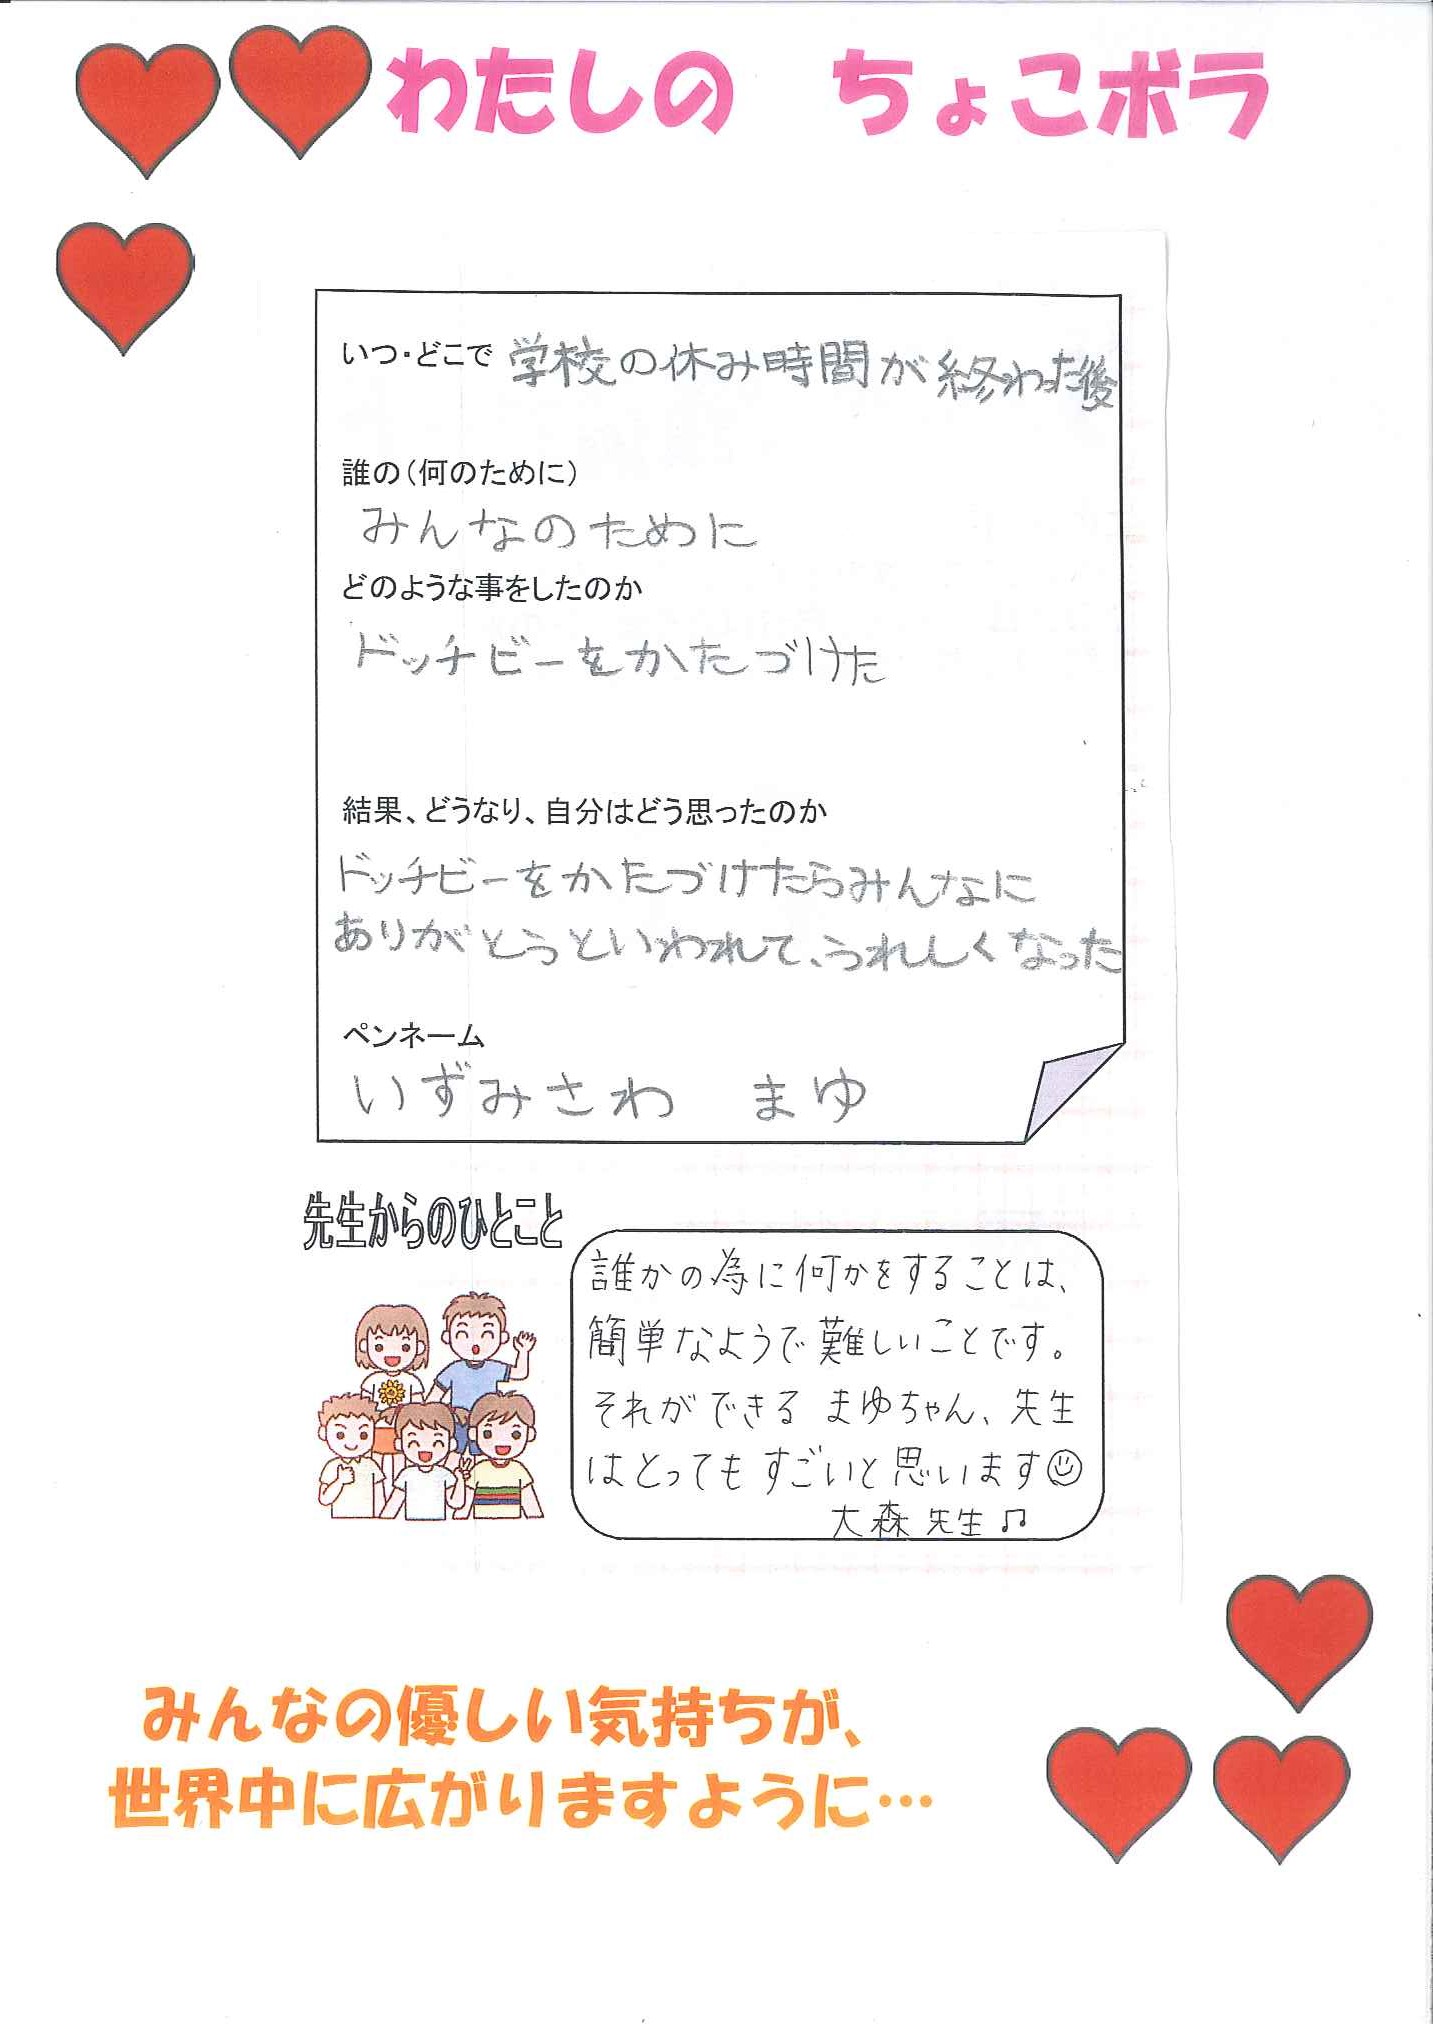 わたしの　ちょこボラ
いつ・どこで 学校の休み時間が終わった後
誰の(何のために)
みんなのために
どのような事をしたのか
ドッチビーをかたづけた
結果、どうなり、自分はどう思ったのか
ドッチビーをかたづけたらみんなに
ありがとうといわれて、うれしくなった
ペンネーム
いずみさわ　まゆ
先生からのひとこと
誰かの為に何かをすることは、
簡単なようで難しいことです。
それができる まゆちゃん、先生
はとってもすごいと思います☺
大森先生♫
みんなの優しい気持ちが、
世界中に広がりますように…